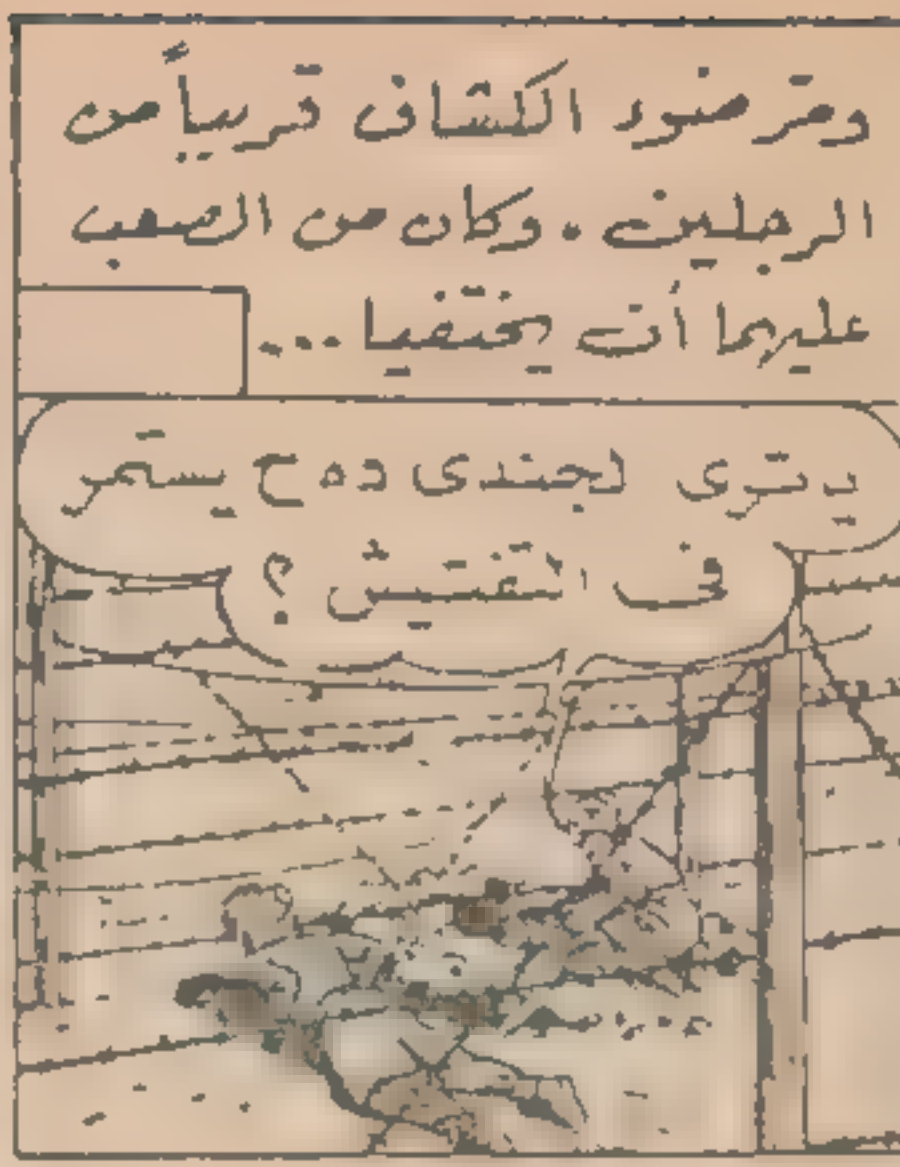 ومرّ ضوء الكشاف قريباً من
الرجلين . وكان من الصعب
عليهما أن يختفيا ...
يترى لجندى ده ح يستمر
فى التفتيش ؟